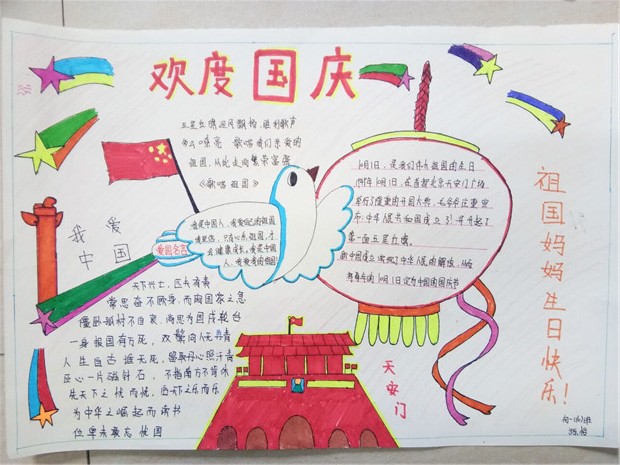 欢度国庆
五星红旗迎风飘扬,胜利歌声
多么响亮 歌唱我们亲爱的
祖国,从此走向繁荣富强
《歌唱祖国》
我爱
中国
爱国名言
我是中国人,我爱自己的祖国
10月1日,是我们伟大祖国的生日
1949年10月1日,在首都北京天安门广场
举行了隆重的开国大典,毛泽东主席宣
布:中华人民共和国成立了!并升起了
第一面五星红旗。
天下兴亡,匹夫有责
常思奋不顾身,而殉国家之急
僵卧孤村不自哀,尚思为国戍轮台
一身报国有万死,双鬓向人无再青
人生自古谁无死,留取丹心照汗青
臣心一片磁针石,不指南方不肯休
先天下之忧而忧,后天下之乐而乐
为中华之崛起而读书
位卑未敢忘忧国
天安门
祖国妈妈生日快乐!